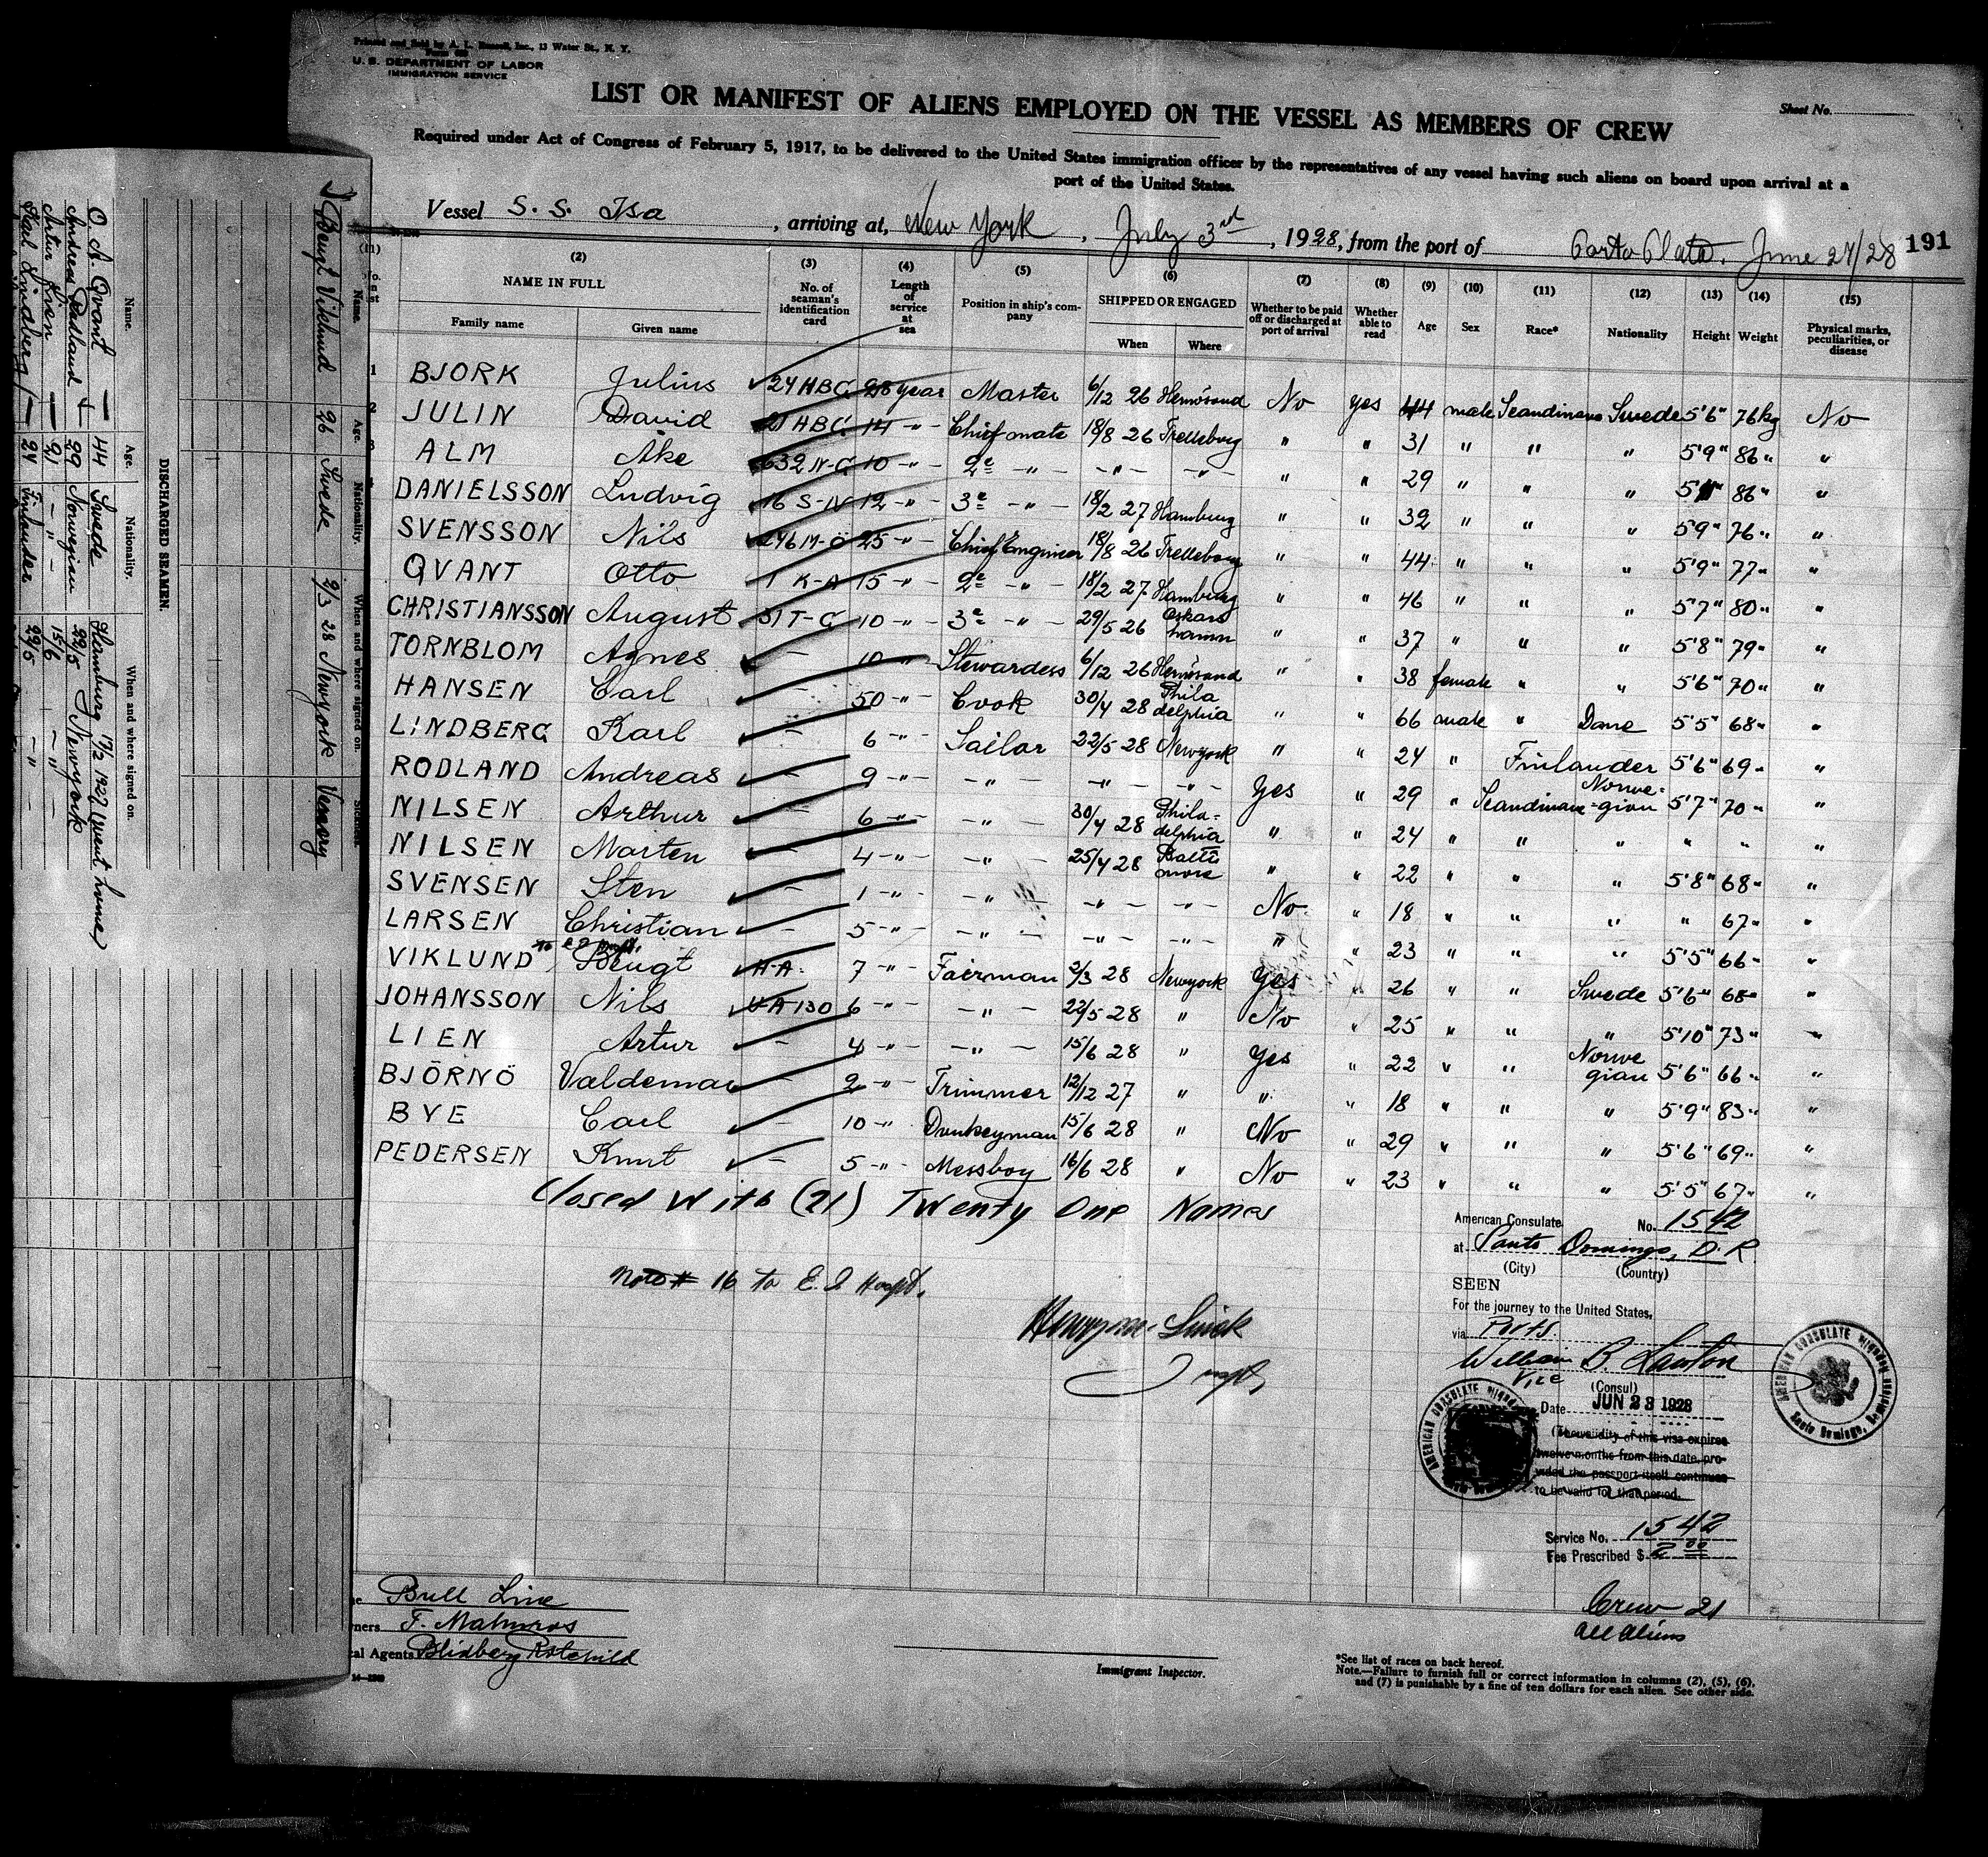 Printed and Sold by A. L. Russell, Inc., 13 Water St., N. Y.
U. S. DEPARTMENT OF LABOR
IMMIGRATION SERVICE
LIST OR MANIFEST OF ALIENS EMPLOYED ON THE VESSEL AS MEMBERS OF CREW
Sheet No.
Required under Act of Congress of February 5, 1917, to be delivered to the United States immigration officer by the representatives of any vessel having such aliens on board upon arrival at a
port of the United States.
Vessel S. S. Isa, arriving at, New York, July 3rd, 1928, from the port of Porto Plata. June 27/28 191
(2) NAME IN FULL (3) No. of seaman's identification card (4) Length of service at sea (5) Position in ship's company (6) SHIPPED OR ENGAGED (7) Whether to be paid off or discharged at port of arrival (8) Whether able to read (9) Age (10) Sex (11) Race* (12) Nationality (13) Height (14) Weight (15) Physical marks, peculiarities, or disease
Family name Given name When Where
1 BJORK Julius 24 HBC 28 year Master 6/12 26 Hernösand No yes 44 male Scandinava Swede 5'6" 76 kg No
2 JULIN David 21 ABC 14 -"- Chief mate 18/8 26 Trelleborg " " 31 " " " 5'9" 86 " "
3 ALM Ake 632 N-C 10 -"- 2e -"- -"- -"- " " 29 " " " 86 " "
DANIELSSON Ludvig 16 S-N 12 -"- 3e -"- 18/2 27 Hamburg " " 32 " " " 5'9" 76 " "
SVENSSON Nils 246 M-Ö 25 -"- Chief Enginer 18/8 26 Trelleborg " " 44 " " " 5'9" 77 " "
QVANT Otto 1 K-A 15 -"- 2e -"- 18/2 27 Hamburg " " 46 " " " 5'7" 80 " "
CHRISTIANSSON August 31 T-C 10 -"- 3e -"- 29/5 26 Oskarshamn " " 37 " " " 5'8" 79 " "
TORNBLOM Agnes - 10 " Stewardess 6/12 26 Hernösand " " 38 female " " 5'6" 70 " "
HANSEN Carl - 50 -"- Cook 30/4 28 Philadelphia " " 66 male " Dane 5'5" 68 " "
LINDBERG Karl - 6 -"- Sailor 22/5 28 Newyork " " 24 " Finlander 5'6" 69 " "
RODLAND Andreas - 9 -"- -"- -"- -"- Yes " 29 " Scandinava Norwegian 5'7" 70 " "
NILSEN Arthur 6 -"- -"- 30/4 28 Philadelphia " " 24 " " " " " "
NILSEN Morten 4 -"- -"- 25/4 28 Baltimore " " 22 " " " 5'8" 68 " "
SVENSEN Sten - 1 -"- -"- -"- -"- No " 18 " " " " 67 " "
LARSEN Christian - 5 -"- -"- -"- -"- " " 23 " " " 5'5" 66 " "
VIKLUND Bengt H-A 7 -"- Fairman 2/3 28 Newyork Yes " 26 " " Swede 5'6" 68 " "
JOHANSSON Nils U-A 130 6 -"- -"- 22/5 28 " No " 25 " " " 5'10" 73 " "
LIEN Artur - 4 -"- -"- 15/6 28 " Yes " 22 " " Norwegian 5'6" 66 " "
BJÖRNÖ Valdemar - 2 -"- Trimmer 12/12 27 " " " 18 " " " 5'9" 83 " "
BYE Carl - 10 -"- Donkeyman 15/6 28 " No " 29 " " " 5'6" 69 " "
PEDERSEN Knut - 5 -"- Messboy 16/6 28 " No " 23 " " " 5'5" 67 " "
Closed With (21) Twenty One Names
Note # 16 to E. I Hospt.
American Consulate No. 1542
at Santo Domingo, D. R.
(City) (Country)
SEEN
For the journey to the United States,
via Ports.
William B. Lawton
Vice (Consul)
Date JUN 23 1928
(The validity of this visa expires
twelve months from this date, pro-
vided the passport itself continues
to be valid for that period.
Service No. 1542
Fee Prescribed $ 2.00
AMERICAN CONSULATE
Santo Domingo,
AMERICAN CONSULATE
Crew 21
all aliens
Bull Line
F. Malmros
Agents Blidberg Rotchild
Immigrant Inspector.
*See list of races on back hereof.
Note.—Failure to furnish full or correct information in columns (2), (5), (6),
and (7) is punishable by a fine of ten dollars for each alien. See other side.
DISCHARGED SEAMEN.
Name. Age. Nationality. When and where signed on.
O. A. Qvant 44 Swede Hamburg 17/2 1927 (went home)
Andreas Rodland 29 Norwegian 22/5 Newyork
Artur Lien 21 -"- 15/6 -"-
Karl Lindberg 24 Finlander 22/5 -"-
Name. Age. Nationality. When and where signed on.
Bengt Viklund 26 Swede 2/3 28 Newyork